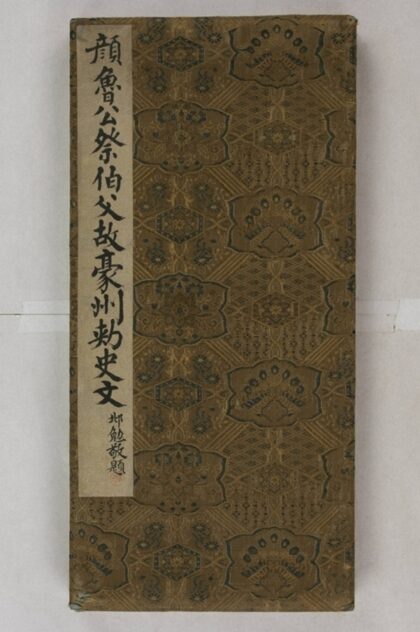 顔魯公祭伯父故豪州刺史文
邢勉敬題